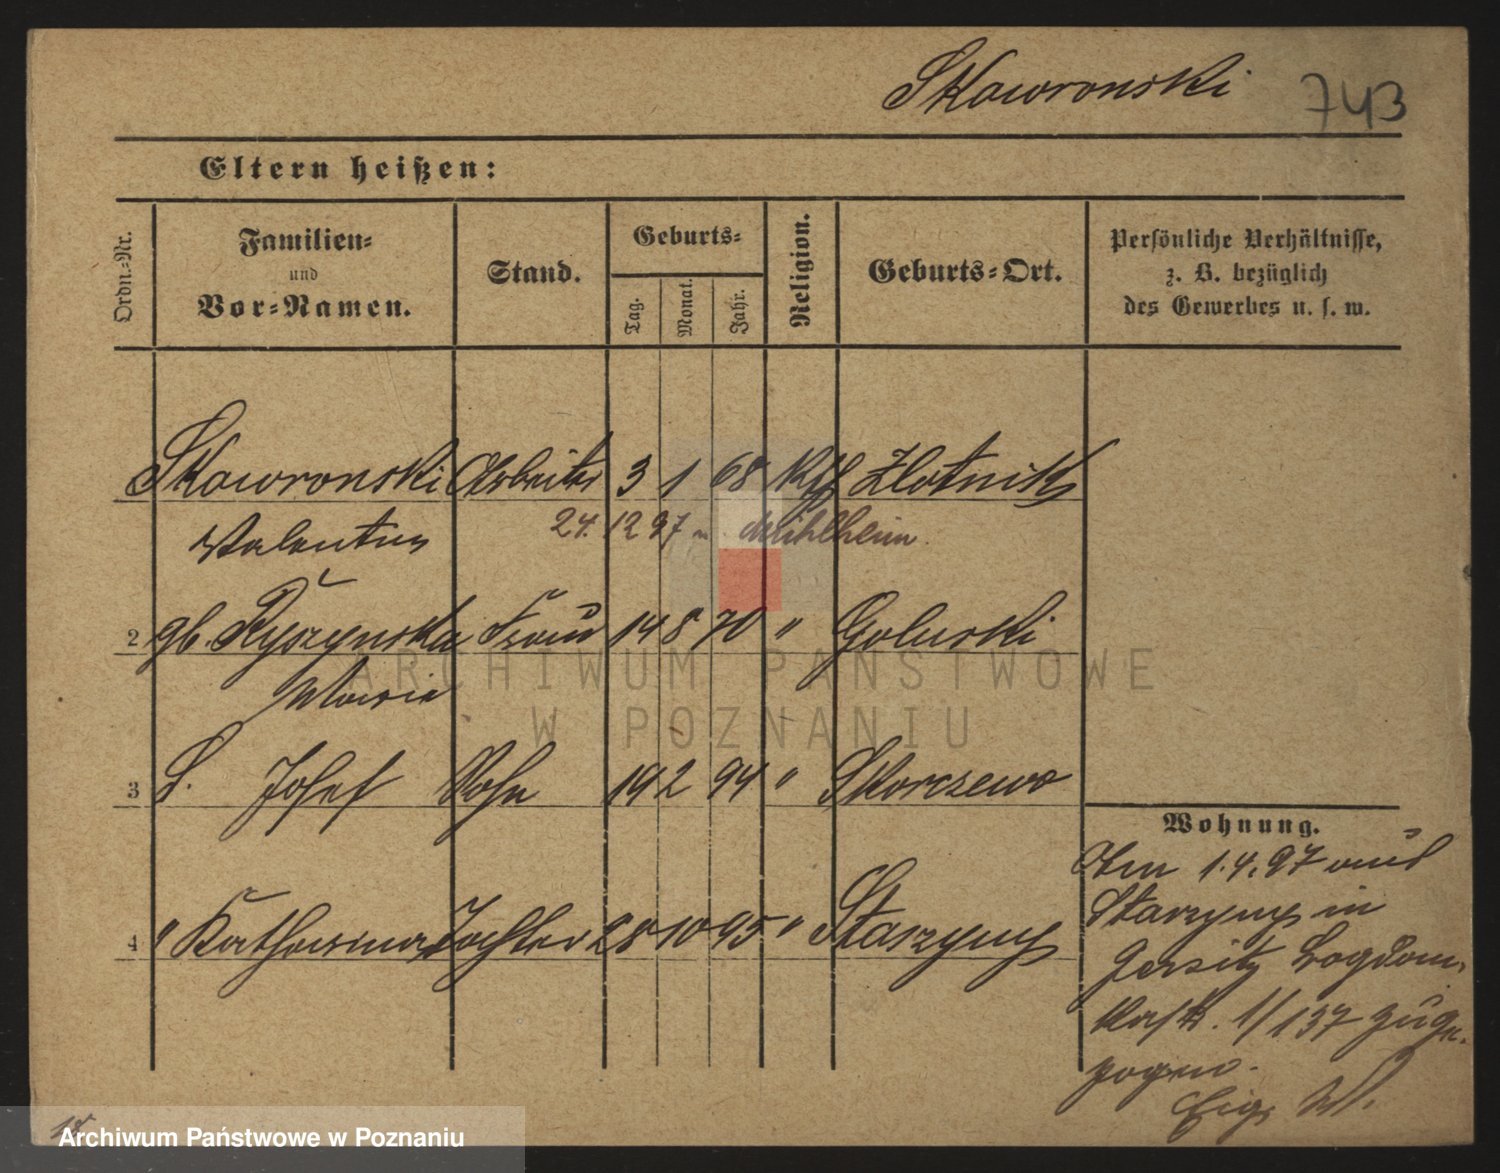 Skowronski 743
Eltern heißen:
Ordn.-Nr.
Familien-
und
Vor-Namen.
Stand.
Geburts-
Tag.
Monat.
Jahr.
Religion.
Geburts-Ort.
Persönliche Verhältnisse,
z. B. bezüglich
des Gewerbes u. s. w.
Skowronski Arbeiter 3 1 68 Kth Zlotnik
Valentin 24. 12 97 n. Mühlheim.
2 gb. Ryszynska Frau 14 8 70 " Goluski
Marie
3 S. Josef Sohn 19 2 94 " Skorczewo
4 " Katharina Tochter 28 10 95 " Starzyny
Wohnung.
Am 1.4.97 aus
Starzyny in
Jersitz
1/137 zuge-
zogen.
ARCHIWUM PAŃSTWOWE
W POZNANIU
Archiwum Państwowe w Poznaniu